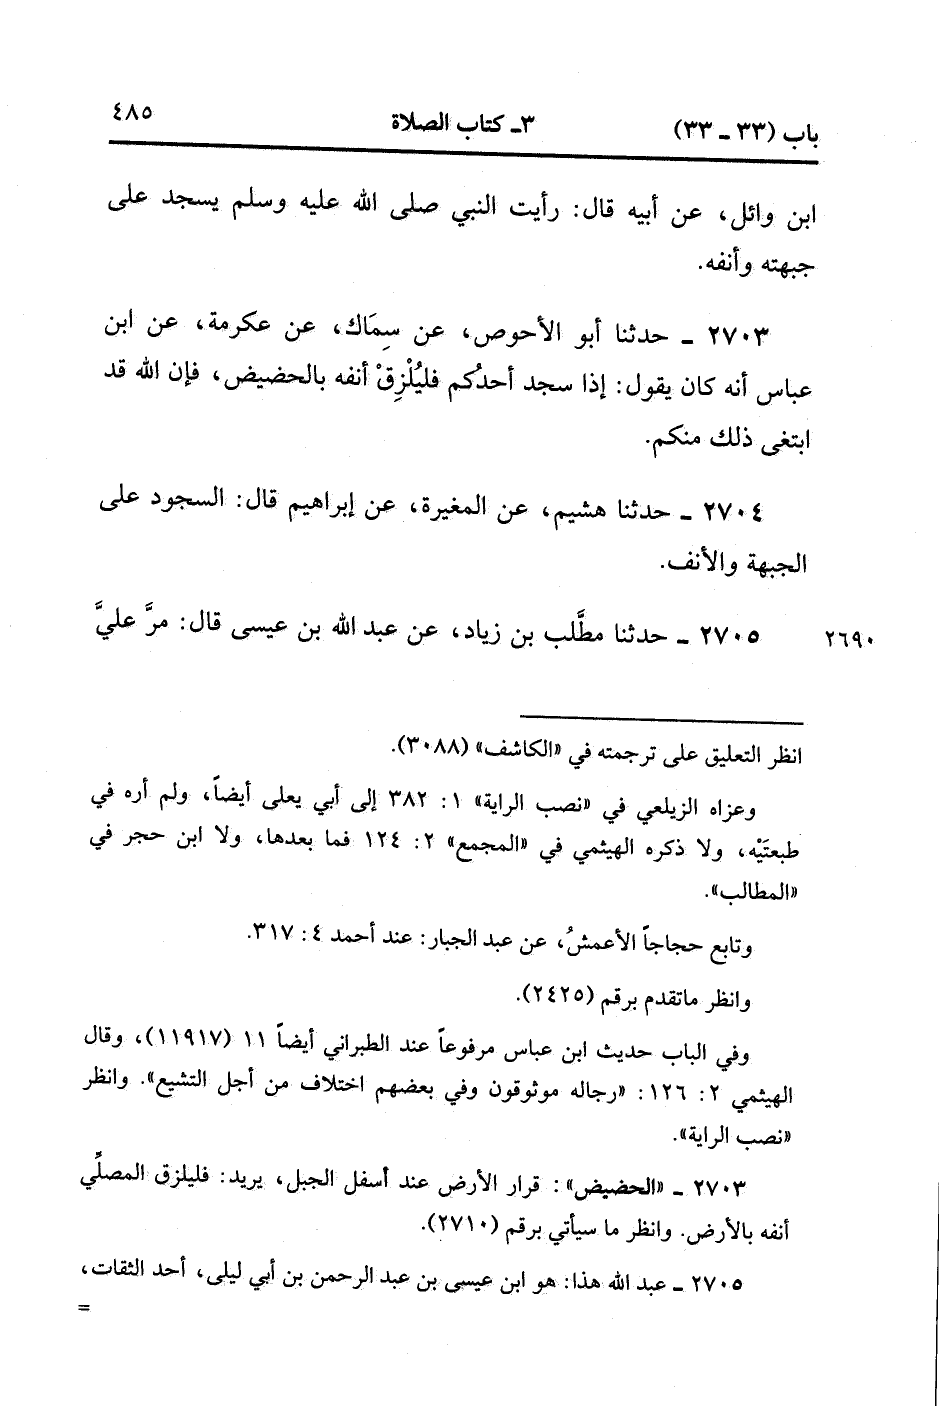 باب (٣٣ - ٣٣) ٣- كتاب الصلاة ٤٨٥
ابن وائل، عن أبيه قال: رأيت النبي صلى الله عليه وسلم يسجد على
جبهته وأنفه.
٢٧٠٣ - حدثنا أبو الأحوص، عن سِمَاك، عن عكرمة، عن ابن
عباس أنه كان يقول: إذا سجد أحدُكم فليُلْزِقْ أنفه بالحضيض، فإن الله قد
ابتغى ذلك منكم.
٢٧٠٤ - حدثنا هشيم، عن المغيرة، عن إبراهيم قال: السجود على
الجبهة والأنف.
٢٦٩٠ ٢٧٠٥ - حدثنا مطَّلب بن زياد، عن عبد الله بن عيسى قال: مرَّ عليَّ
انظر التعليق على ترجمته في «الكاشف» (٣٠٨٨).
وعزاه الزيلعي في «نصب الراية» ١: ٣٨٢ إلى أبي يعلى أيضاً، ولم أره في
طبعتَيْه، ولا ذكره الهيثمي في «المجمع» ٢: ١٢٤ فما بعدها، ولا ابن حجر في
«المطالب».
وتابع حجاجاً الأعمشُ، عن عبد الجبار: عند أحمد ٤: ٣١٧.
وانظر ماتقدم برقم (٢٤٢٥).
وفي الباب حديث ابن عباس مرفوعاً عند الطبراني أيضاً ١١ (١١٩١٧)، وقال
الهيثمي ٢: ١٢٦: «رجاله موثوقون وفي بعضهم اختلاف من أجل التشيع». وانظر
«نصب الراية».
٢٧٠٣ - «الحضيض»: قرار الأرض عند أسفل الجبل، يريد: فليلزق المصلِّي
أنفه بالأرض. وانظر ما سيأتي برقم (٢٧١٠).
٢٧٠٥ - عبد الله هذا: هو ابن عيسى بن عبد الرحمن بن أبي ليلى، أحد الثقات،
=